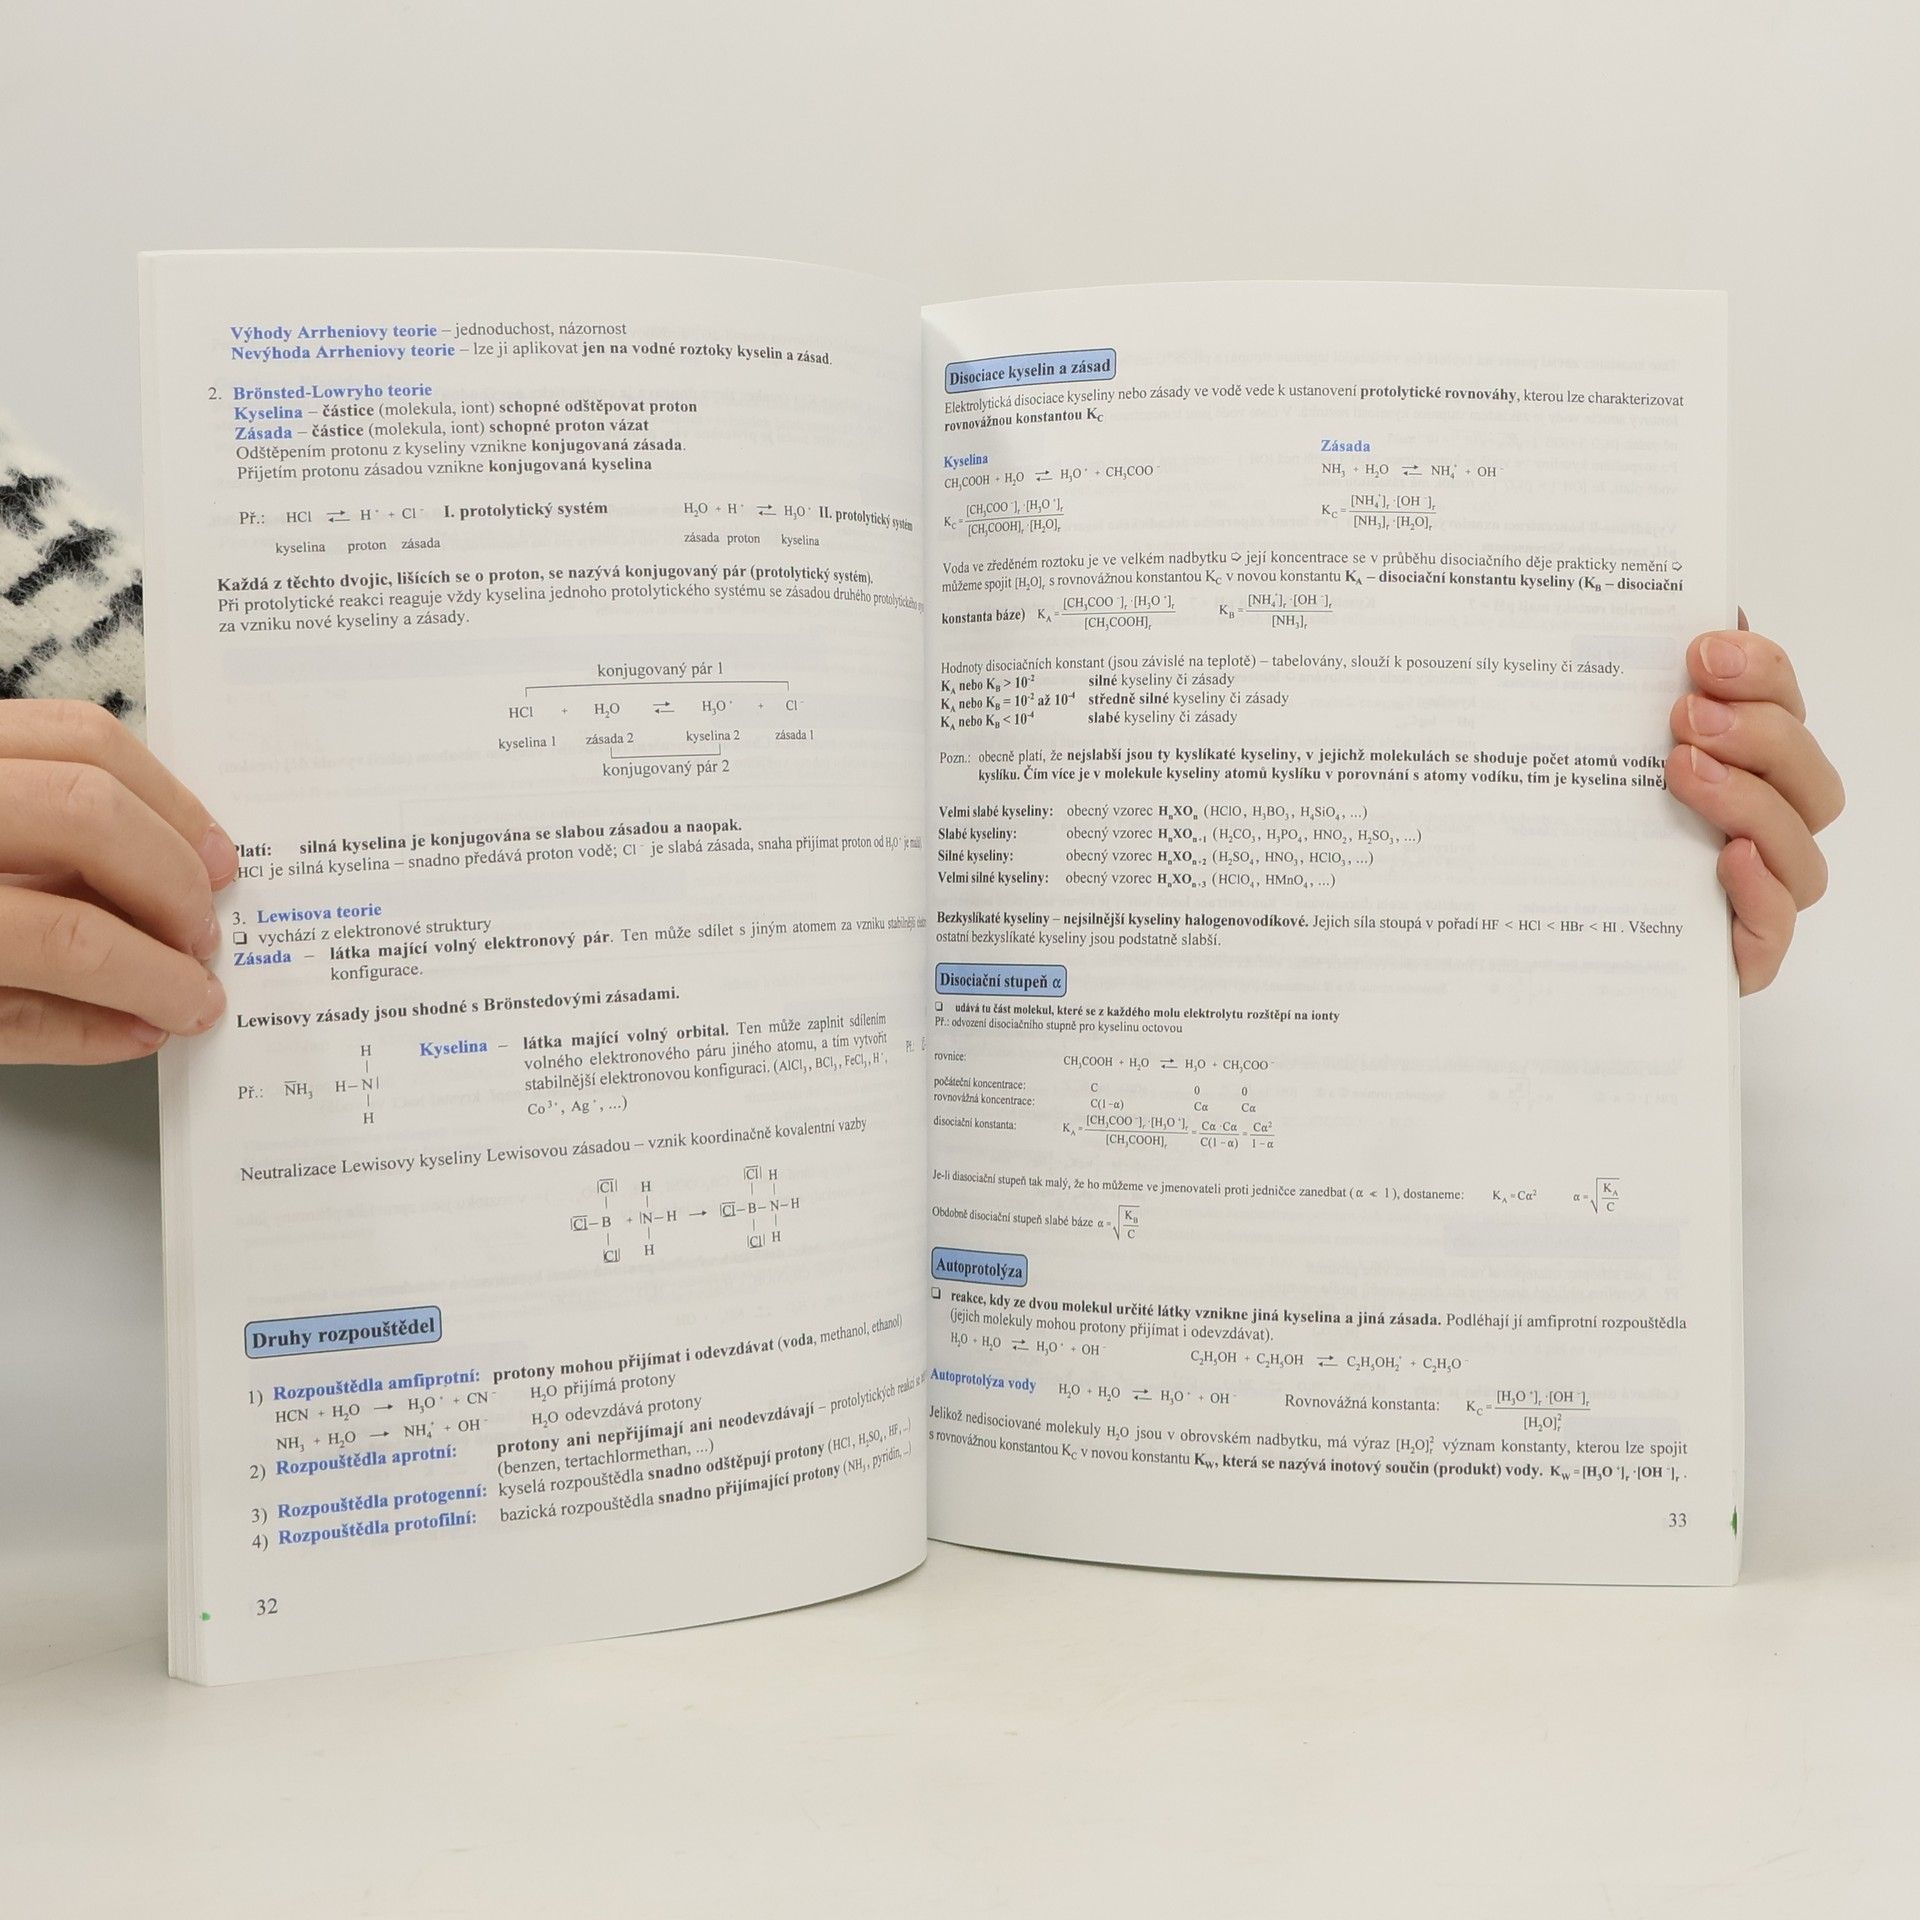 Výhody Arrheniovy teorie – jednoduchost, názornost
Nevýhoda Arrheniovy teorie – lze ji aplikovat jen na vodné roztoky kyselin a zásad.
2. Brönsted-Lowryho teorie
Kyselina – částice (molekula, iont) schopné odštěpovat proton
Zásada – částice (molekula, iont) schopné proton vázat
Odštěpením protonu z kyseliny vznikne konjugovaná zásada.
Přijetím protonu zásadou vznikne konjugovaná kyselina
Př.: HCl ⇄ H⁺ + Cl⁻ I. protolytický systém H₂O + H⁺ ⇄ H₃O⁺ II. protolytický systém
kyselina proton zásada zásada proton kyselina
Každá z těchto dvojic, lišících se o proton, se nazývá konjugovaný pár (protolytický systém).
Při protolytické reakci reaguje vždy kyselina jednoho protolytického systému se zásadou druhého protolytického
za vzniku nové kyseliny a zásady.
konjugovaný pár 1
HCl + H₂O ⇄ H₃O⁺ + Cl⁻
kyselina 1 zásada 2 kyselina 2 zásada 1
konjugovaný pár 2
Platí: silná kyselina je konjugována se slabou zásadou a naopak.
(HCl je silná kyselina – snadno předává proton vodě; Cl⁻ je slabá zásada, snaha přijímat proton od H₃O⁺ je
3. Lewisova teorie
❑ vychází z elektronové struktury
Zásada – látka mající volný elektronový pár. Ten může sdílet s jiným atomem za vzniku stabilnější
konfigurace.
Lewisovy zásady jsou shodné s Brönstedovými zásadami.
Kyselina – látka mající volný orbital. Ten může zaplnit sdílením
volného elektronového páru jiného atomu, a tím vytvořit
stabilnější elektronovou konfiguraci. (AlCl₃, BCl₃, FeCl₃, H⁺,
Co³⁺, Ag⁺, ...)
H
Př.: N̅H₃ H–N|
H
Neutralizace Lewisovy kyseliny Lewisovou zásadou – vznik koordinačně kovalentní vazby
|C̅l| H |C̅l| H
|C̅l–B + |N–H → |C̅l–B–N–H
|Cl| H |Cl| H
Druhy rozpouštědel
1) Rozpouštědla amfiprotní: protony mohou přijímat i odevzdávat (voda, methanol, ethanol)
HCN + H₂O → H₃O⁺ + CN⁻ H₂O přijímá protony
NH₃ + H₂O → NH₄⁺ + OH⁻ H₂O odevzdává protony
2) Rozpouštědla aprotní: protony ani nepřijímají ani neodevzdávají – protolytických reakcí se
(benzen, tertachlormethan, ...)
3) Rozpouštědla protogenní: kyselá rozpouštědla snadno odštěpují protony (HCl, H₂SO₄, HF, ..)
4) Rozpouštědla protofilní: bazická rozpouštědla snadno přijímající protony (NH₃, pyridin, ..)
32
Disociace kyselin a zásad
Elektrolytická disociace kyseliny nebo zásady ve vodě vede k ustanovení protolytické rovnováhy, kterou lze charakterizovat
rovnovážnou konstantou K_C
Kyselina Zásada
CH₃COOH + H₂O ⇄ H₃O⁺ + CH₃COO⁻ NH₃ + H₂O ⇄ NH₄⁺ + OH⁻
K_C = [CH₃COO⁻]ᵣ·[H₃O⁺]ᵣ / [CH₃COOH]ᵣ·[H₂O]ᵣ K_C = [NH₄⁺]ᵣ·[OH⁻]ᵣ / [NH₃]ᵣ·[H₂O]ᵣ
Voda ve zředěném roztoku je ve velkém nadbytku ➪ její koncentrace se v průběhu disociačního děje prakticky nemění ➪
můžeme spojit [H₂O]ᵣ s rovnovážnou konstantou K_C v novou konstantu K_A – disociační konstantu kyseliny (K_B – disociační
konstanta báze) K_A = [CH₃COO⁻]ᵣ·[H₃O⁺]ᵣ / [CH₃COOH]ᵣ K_B = [NH₄⁺]ᵣ·[OH⁻]ᵣ / [NH₃]ᵣ
Hodnoty disociačních konstant (jsou závislé na teplotě) – tabelovány, slouží k posouzení síly kyseliny či zásady.
K_A nebo K_B > 10⁻² silné kyseliny či zásady
K_A nebo K_B = 10⁻² až 10⁻⁴ středně silné kyseliny či zásady
K_A nebo K_B < 10⁻⁴ slabé kyseliny či zásady
Pozn.: obecně platí, že nejslabší jsou ty kyslíkaté kyseliny, v jejichž molekulách se shoduje počet atomů vodíku
kyslíku. Čím více je v molekule kyseliny atomů kyslíku v porovnání s atomy vodíku, tím je kyselina silněj
Velmi slabé kyseliny: obecný vzorec HₙXOₙ (HClO, H₃BO₃, H₄SiO₄, ...)
Slabé kyseliny: obecný vzorec HₙXOₙ₊₁ (H₂CO₃, H₃PO₄, HNO₂, H₂SO₃, ...)
Silné kyseliny: obecný vzorec HₙXOₙ₊₂ (H₂SO₄, HNO₃, HClO₃, ...)
Velmi silné kyseliny: obecný vzorec HₙXOₙ₊₃ (HClO₄, HMnO₄, ...)
Bezkyslíkaté kyseliny – nejsilnější kyseliny halogenovodíkové. Jejich síla stoupá v pořadí HF < HCl < HBr < HI . Všechny
ostatní bezkyslíkaté kyseliny jsou podstatně slabší.
Disociační stupeň α
❑ udává tu část molekul, které se z každého molu elektrolytu rozštěpí na ionty
Př.: odvození disociačního stupně pro kyselinu octovou
rovnice: CH₃COOH + H₂O ⇄ H₃O + CH₃COO⁻
počáteční koncentrace: C 0 0
rovnovážná koncentrace: C(1-α) Cα Cα
disociační konstanta: K_A = [CH₃COO⁻]ᵣ·[H₃O⁺]ᵣ / [CH₃COOH]ᵣ = Cα·Cα / C(1-α) = Cα² / 1-α
Je-li diasociační stupeň tak malý, že ho můžeme ve jmenovateli proti jedničce zanedbat (α ≪ 1), dostaneme: K_A = Cα² α = √(K_A / C)
Obdobně disociační stupeň slabé báze α = √(K_B / C)
Autoprotolýza
❑ reakce, kdy ze dvou molekul určité látky vznikne jiná kyselina a jiná zásada. Podléhají jí amfiprotní rozpouštědla
(jejich molekuly mohou protony přijímat i odevzdávat).
H₂O + H₂O ⇄ H₃O⁺ + OH⁻ C₂H₅OH + C₂H₅OH ⇄ C₂H₅OH₂⁺ + C₂H₅O⁻
Autoprotolýza vody H₂O + H₂O ⇄ H₃O⁺ + OH⁻ Rovnovážná konstanta: K_C = [H₃O⁺]ᵣ·[OH⁻]ᵣ / [H₂O]ᵣ²
Jelikož nedisociované molekuly H₂O jsou v obrovském nadbytku, má výraz [H₂O]ᵣ² význam konstanty, kterou lze spojit
s rovnovážnou konstantou K_C v novou konstantu K_W, která se nazývá inotový součin (produkt) vody. K_W = [H₃O⁺]ᵣ·[OH⁻]ᵣ .
33